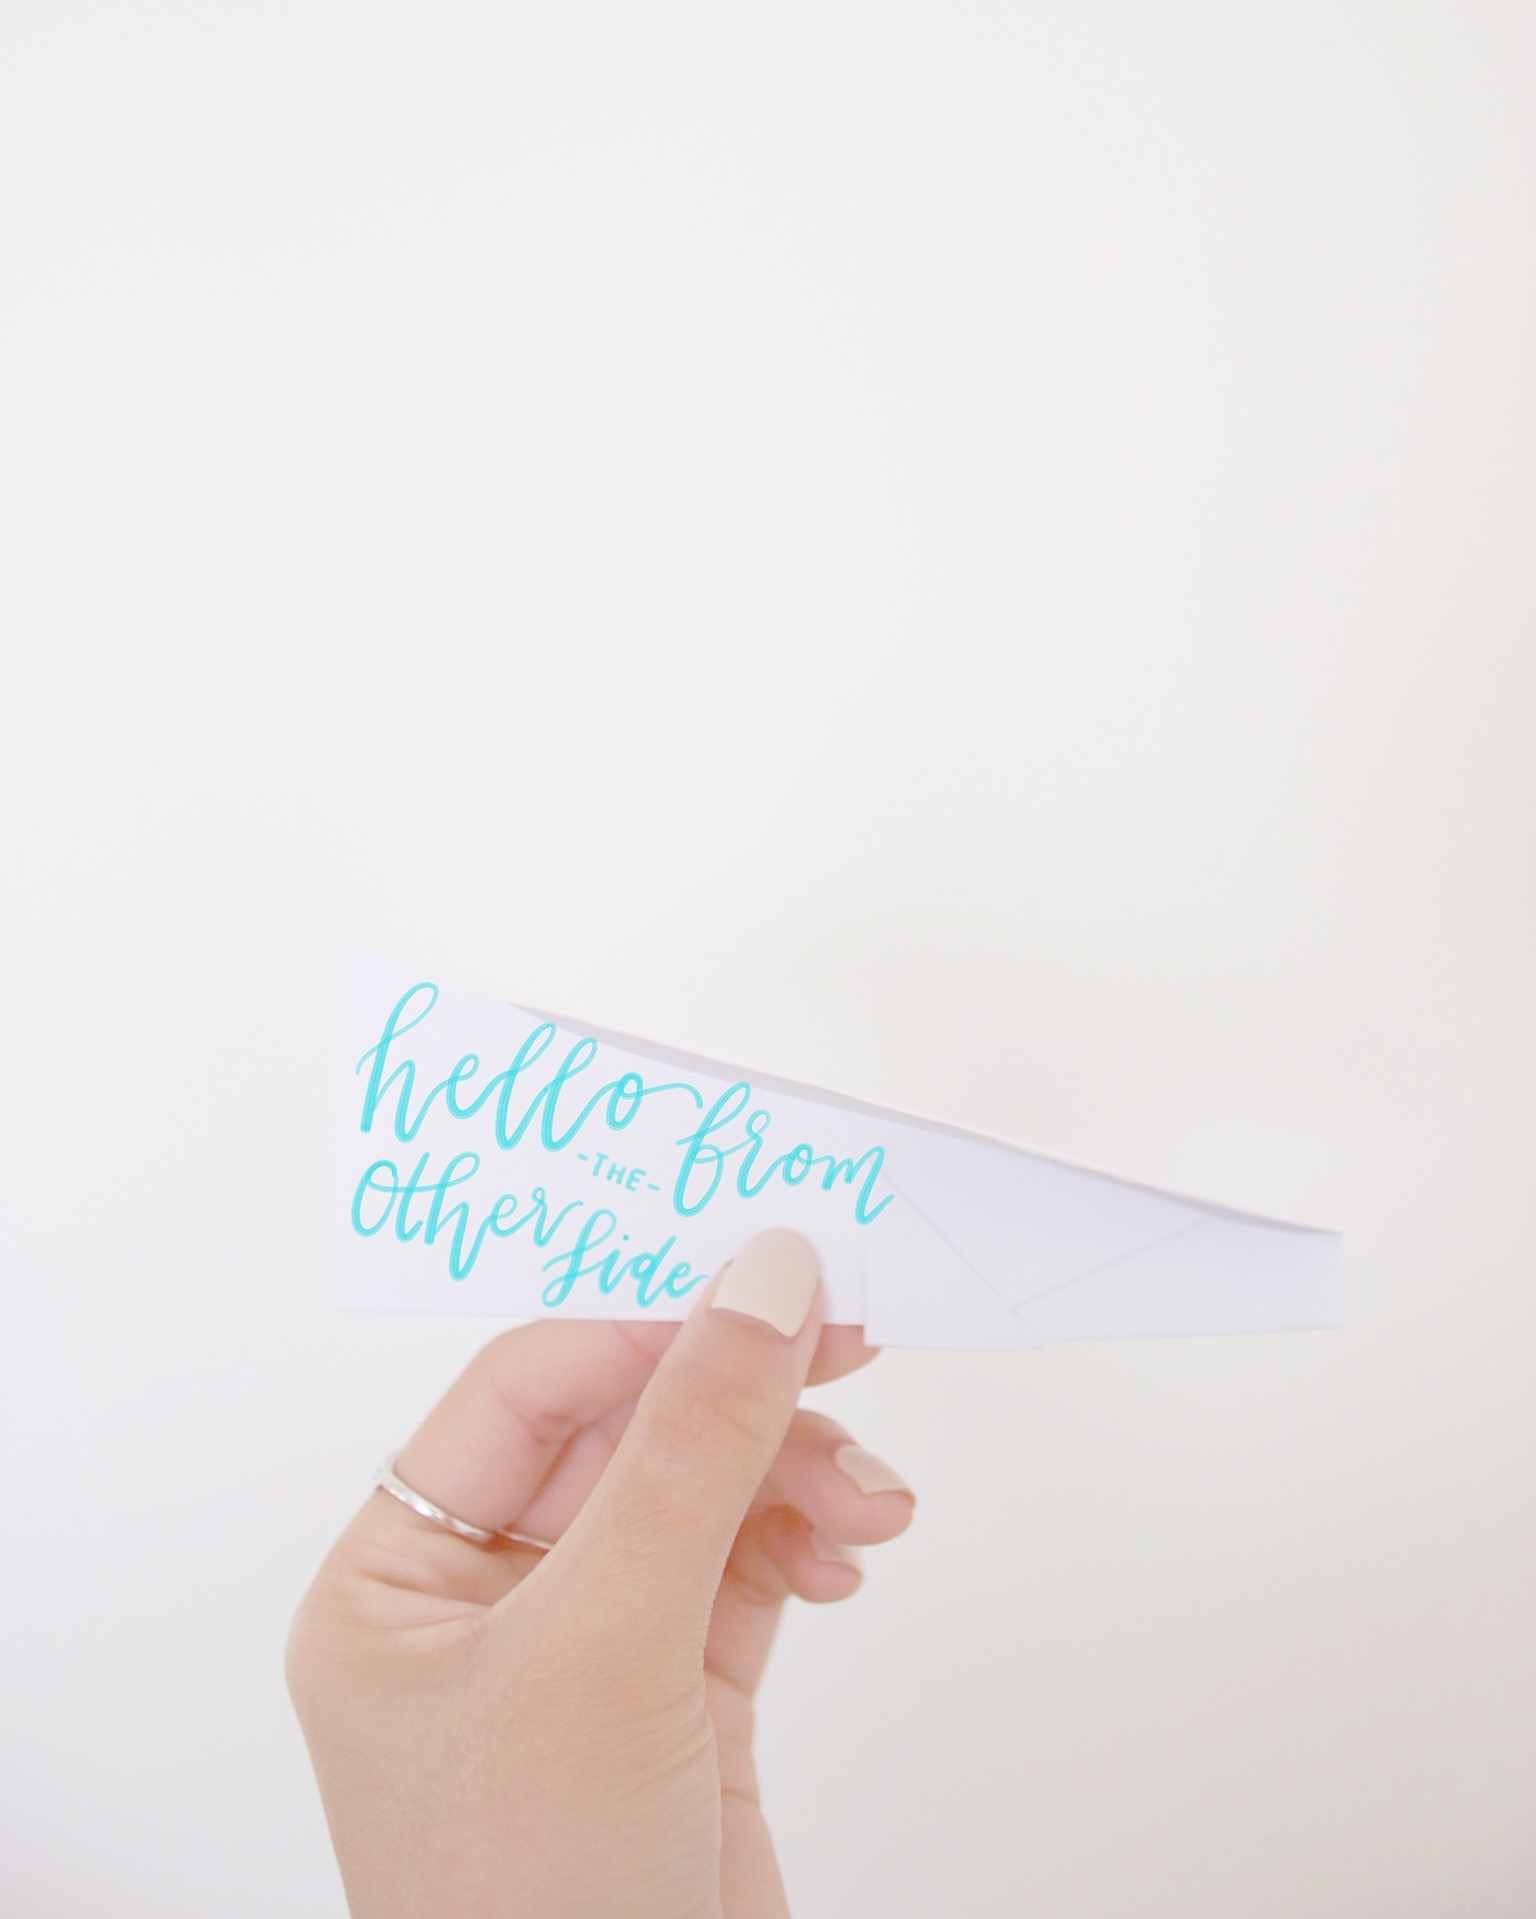 hello from
-THE-
other side